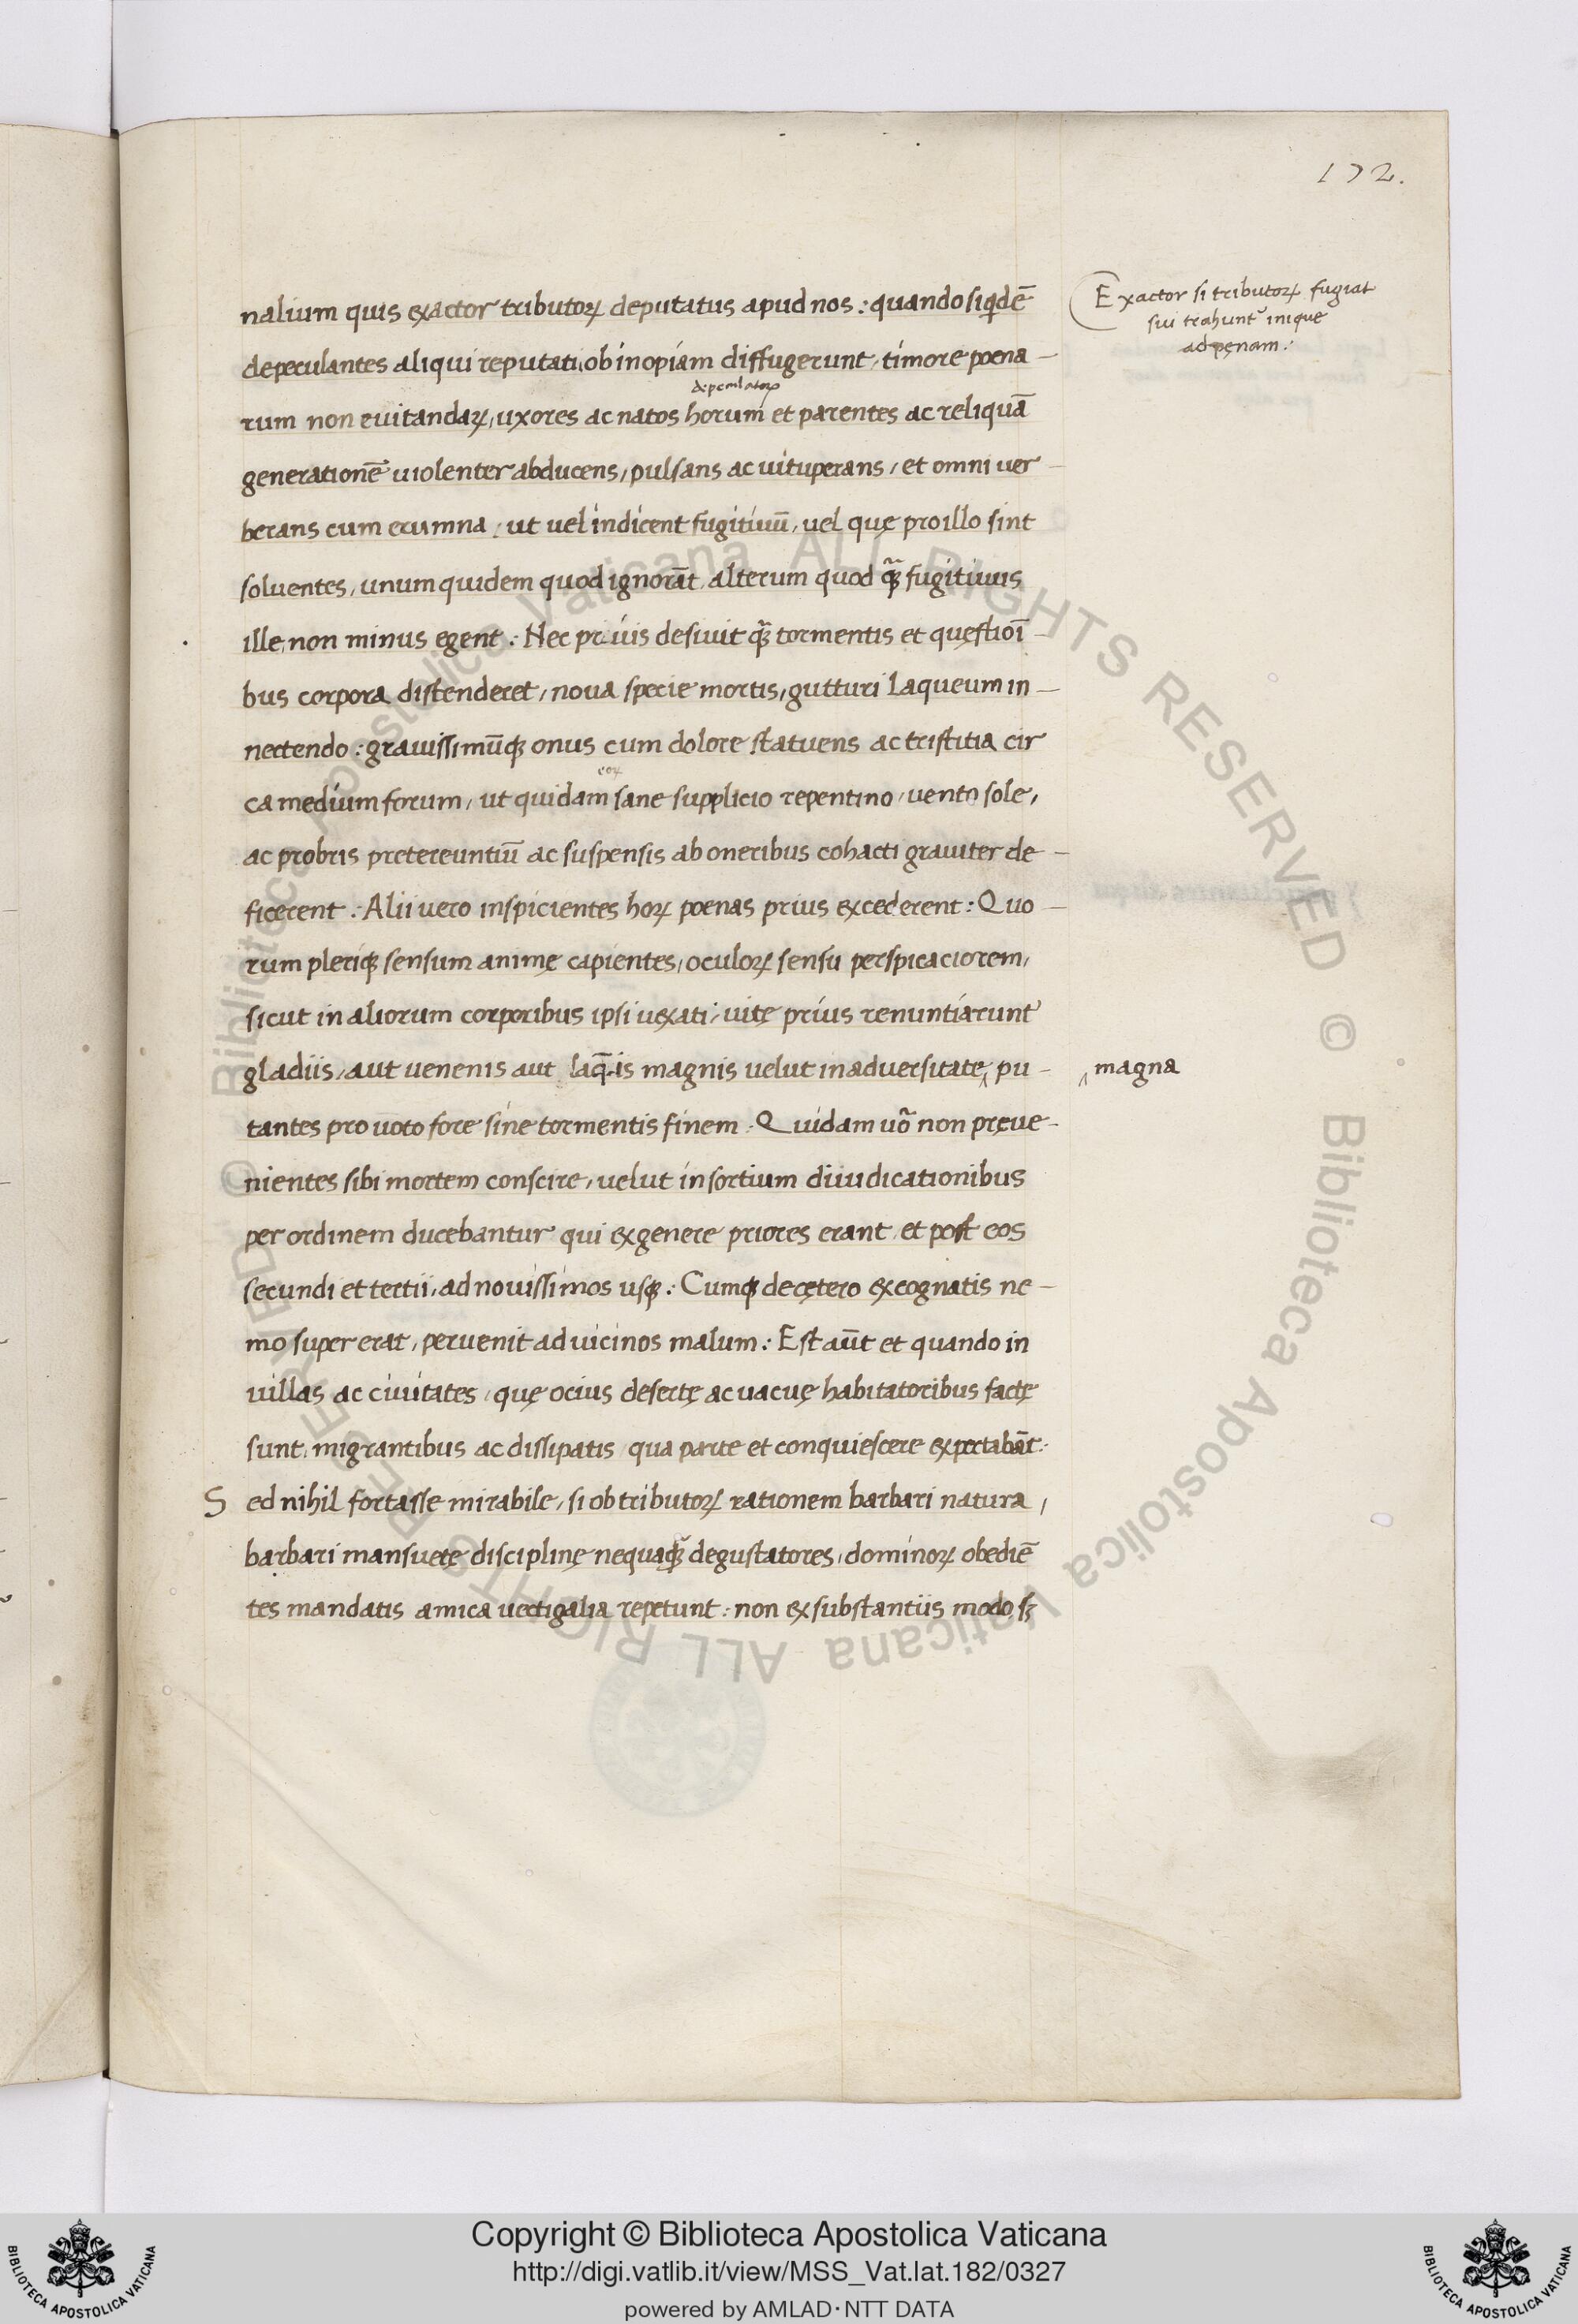 172.
nalium quis exactor tributoꝝ deputatus apud nos : quando siqdē
depeculantes aliqui reputati, ob inopiam diffugerunt, timore poena–
rum non euitandaꝝ, uxores ac natos horum et parentes ac reliquā
generationē uiolenter abducens, pulsans ac uituperans, et omni uer–
berans cum erumna : ut uel indicent fugitiuū, uel quę pro illo sint
soluentes, unum quidem quod ignorāt, alterum quod quā fugitiuus
ille, non minus egent : Nec prius desiuit quā tormentis et quęstioī–
bus corpora distenderet, noua specie mortis, gutturi laqueum in–
nectendo : grauissimūqꝫ onus cum dolore statuens ac tristitia cir
ca medium forum, ut quidam eoꝝ sane supplicio repentino, uento sole,
ac probris pretereuntiū ac suspensis ab oneribus cohacti grauiter de–
ficerent : Alii uero inspicientes hoꝝ poenas prius excederent : Quo–
rum pleriqꝫ sensum animę capientes, oculoꝝ sensu perspicaciorem,
sicut in aliorum corporibus ipsi uexati, uitę prius renuntiarunt
gladiis, aut uenenis aut magnis uelut in aduersitate ‸ pu–
tantes pro uoto fore sine tormentis finem : Quidam uō non pręue–
nientes sibi mortem conscire, uelut in sortium diiudicationibus
per ordinem ducebantur qui ex genere priores erant et post eos
secundi et tertii, ad nouissimos usqꝫ : Cumqꝫ de cętero ex cognatis ne–
mo super erat, peruenit ad uicinos malum : Est aūt et quando in
uillas ac ciuitates, quę ocius desertę ac uacuę habitatoribus factę
sunt, migrantibus ac dissipatis qua parte et conquiescere expectabāt :
Sed nihil fortasse mirabile, si ob tributoꝝ rationem barbari natura,
barbari mansuete disciplinę nequaqꝫ degustatores, dominoꝝ obediē
tes mandatis amica uectigalia repetunt : non ex substantiis modo sꝫ
Exactor si tributoꝝ fugiat
sui trahunt᷑ inique
ad pęnam :
‸ magna
Copyright © Biblioteca Apostolica Vaticana
http://digi.vatlib.it/view/MSS_Vat.lat.182/0327
powered by AMLAD·NTT DATA
BIBLIOTECA APOSTOLICA VATICANA
BIBLIOTECA APOSTOLICA VATICANA
© Biblioteca Apostolica Vaticana ALL RIGHTS RESERVED © Biblioteca Apostolica Vaticana ALL RIGHTS RESERVED